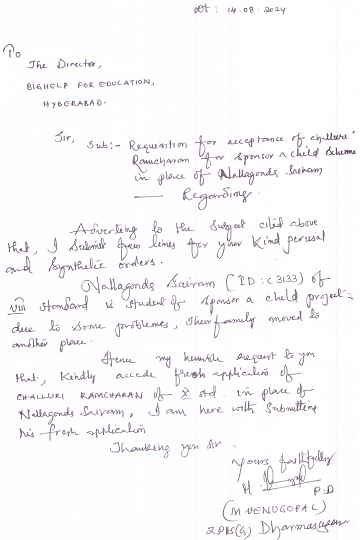 Dt : 14.08.2024
To
The Director,
BIGHELP FOR EDUCATION,
HYDERABAD.
Sir,
Sub:- Requestion for acceptance of challuri
Ramcharan for sponsor a child Scheme
in place of Nallagonda Sairam
Regarding.
Adverting to the subject cited above
that, I submit few lines for your kind perusal
and synthetic orders.
Nallagonda Sairam (ID: C3133) of
VIII standard is student of sponsor a child project
due to some problems, their family moved to
another place.
Hence my humble request to you
that, kindly accede fresh application of
CHALLURI RAMCHARAN of X std. in place of
Nallagonda Sairam, I am here with submitting
his fresh application
Thanking you Sir.
Yours faithfully
H.
P.D
(M VENUGOPAL)
ZPHS(G)